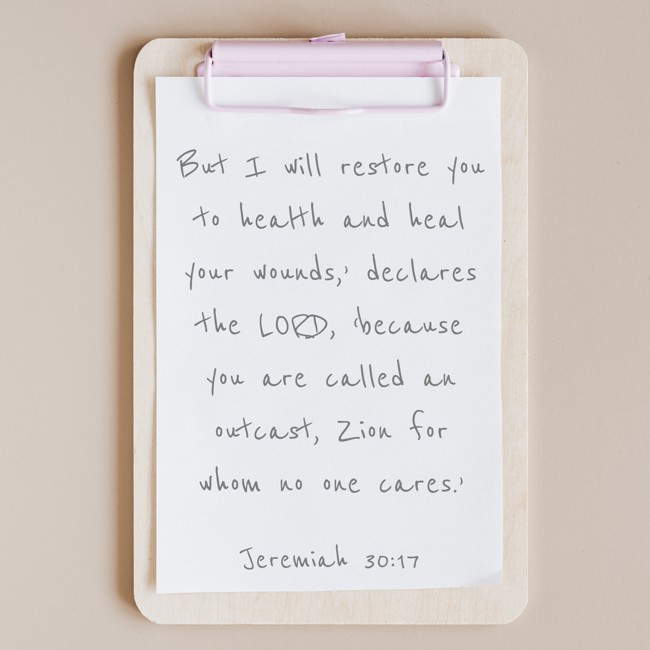 But I will restore you
to health and heal
your wounds,' declares
the LORD, 'because
you are called an
outcast, Zion for
whom no one cares.'
Jeremiah 30:17